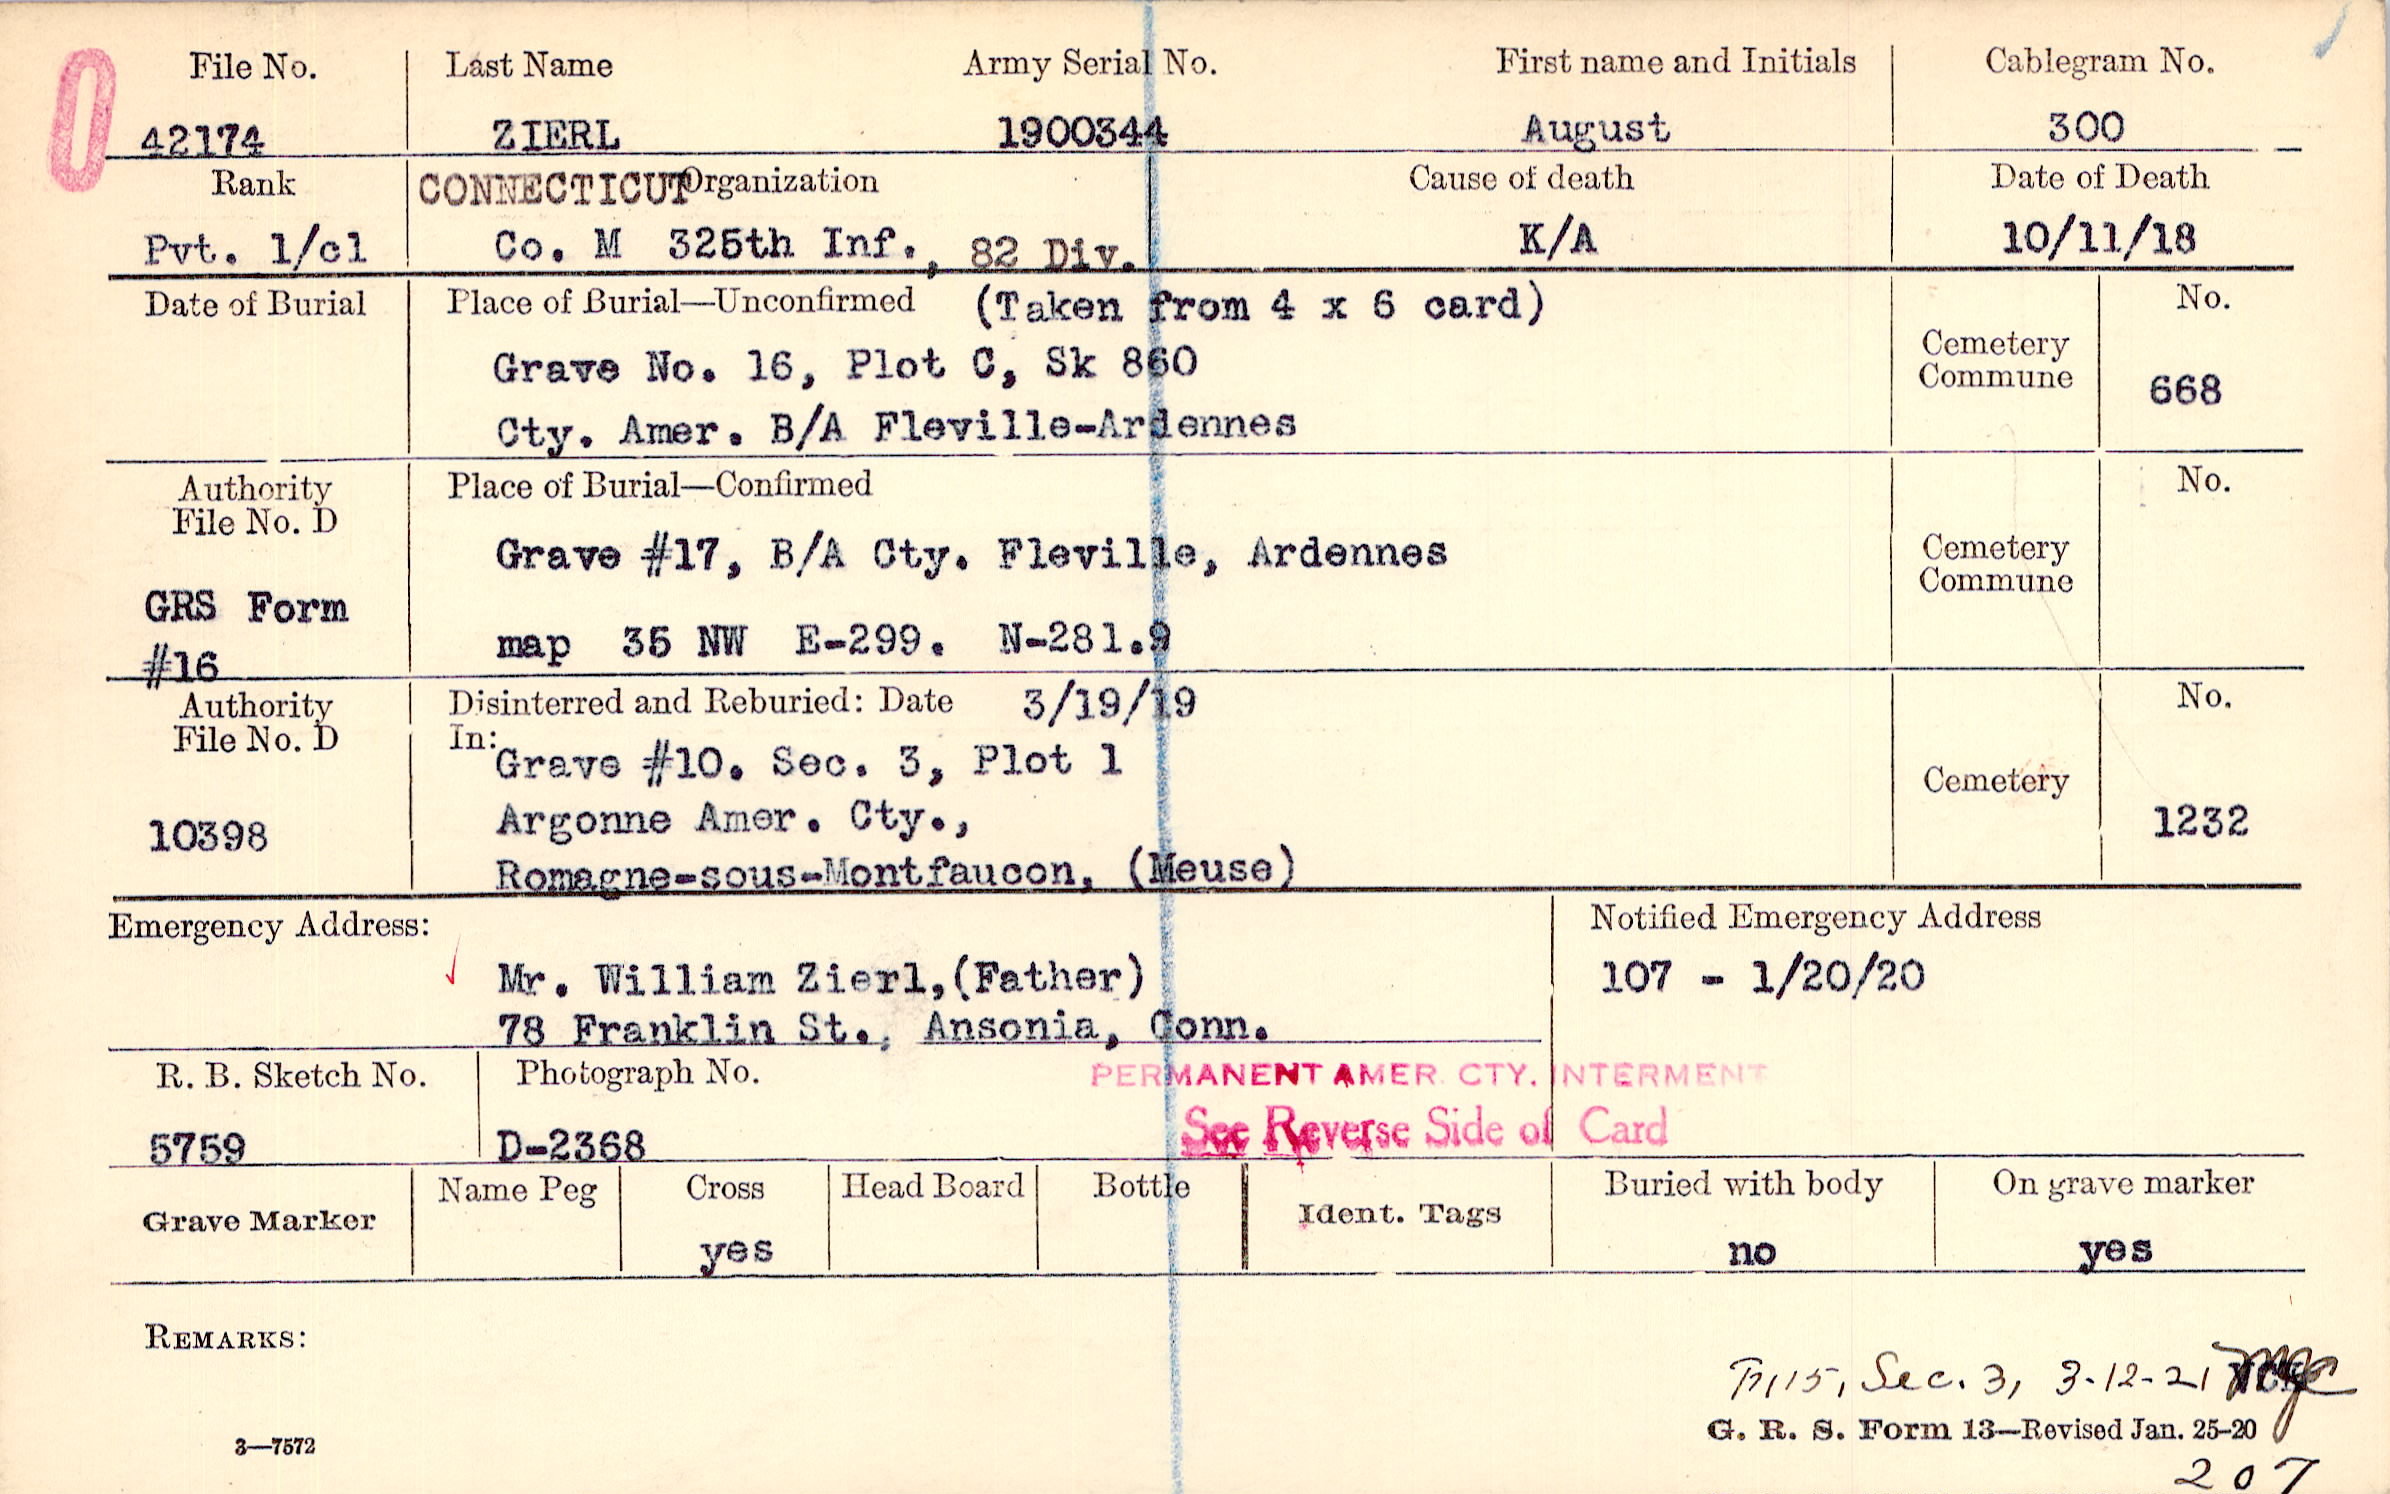 File No. Last Name Army Serial No. First name and Initials Cablegram No.
42174 ZIERL 1900344 August 300
Rank CONNECTICUT Organization Cause of death Date of Death
Pvt. 1/cl Co. M 325th Inf., 82 Div. K/A 10/11/18
Date of Burial Place of Burial—Unconfirmed (Taken from 4 x 6 card) No.
Grave No. 16, Plot C, Sk 860 Cemetery
Commune 668
Cty. Amer. B/A Fleville-Ardennes
Authority Place of Burial—Confirmed No.
File No. D
Grave #17, B/A Cty. Fleville, Ardennes Cemetery
Commune
GRS Form
#16 map 35 NW E-299. N-281.9
Authority Disinterred and Reburied: Date 3/19/19 No.
File No. D In:
Grave #10. Sec. 3, Plot 1 Cemetery
10398 Argonne Amer. Cty., 1232
Romagne-sous-Montfaucon, (Meuse)
Emergency Address: Notified Emergency Address
Mr. William Zierl,(Father) 107 - 1/20/20
78 Franklin St., Ansonia, Conn.
R. B. Sketch No. Photograph No. PERMANENT AMER. CTY. INTERMENT
See Reverse Side of Card
5759 D-2368
Grave Marker Name Peg Cross Head Board Bottle Ident. Tags Buried with body On grave marker
yes no yes
REMARKS:
Sec. 3, 3-12-21
3—7572 G. R. S. Form 13—Revised Jan. 25-20
207